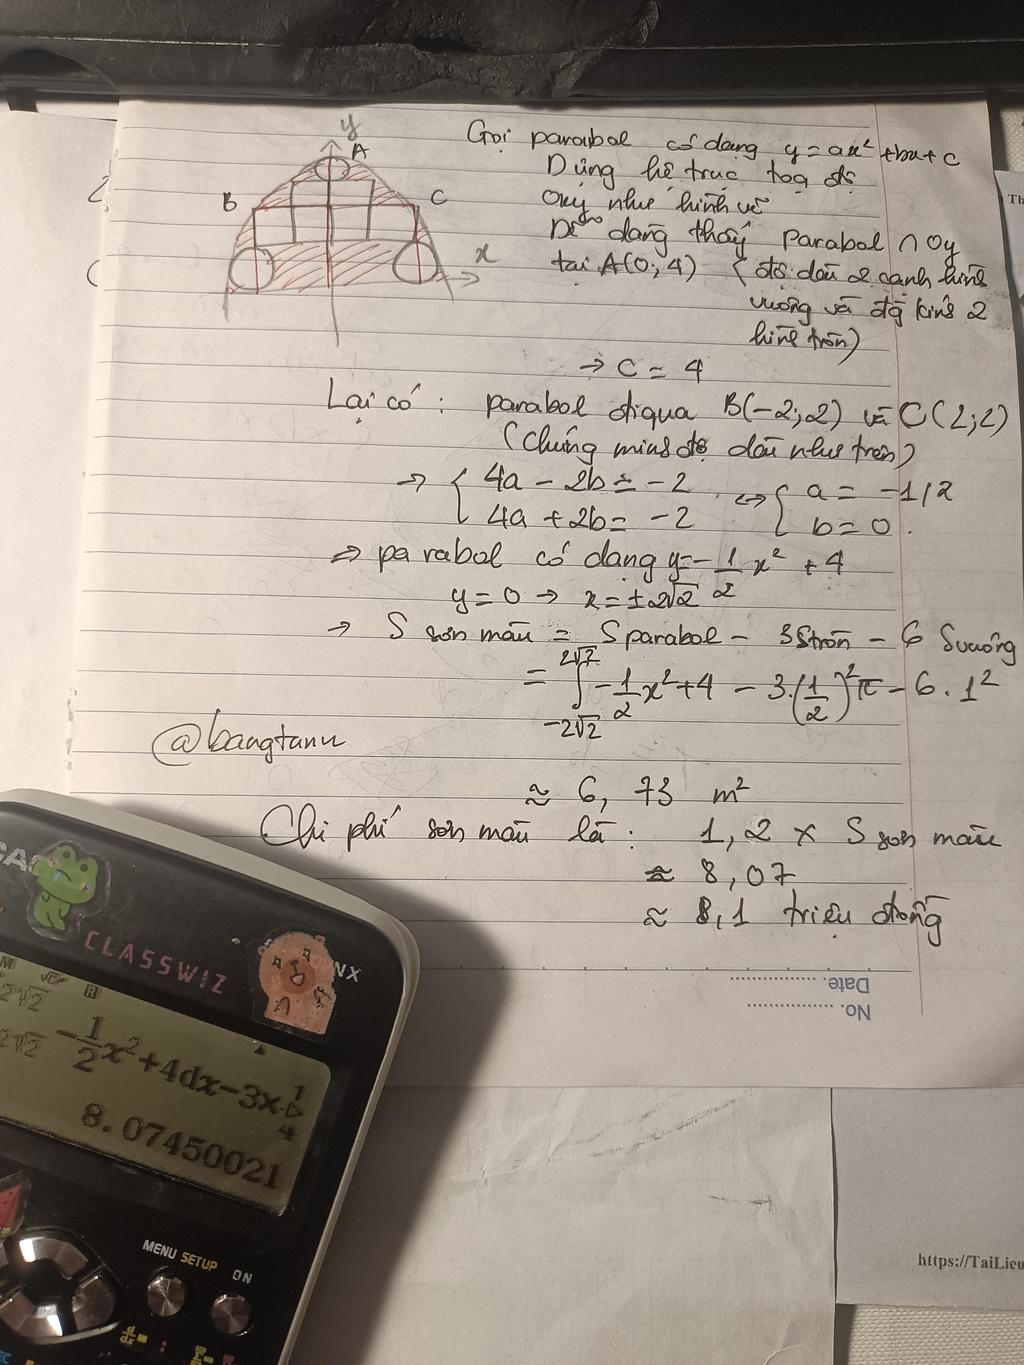 y
A
B
C
x
Gọi parabol có dạng y = ax² + bx + c
Dựng hệ trục toạ độ
Oxy như hình vẽ
Dễ dàng thấy parabol ∩ Oy
tại A(0; 4) (độ dài 2 cạnh hình
vuông và đg kính 2
hình tròn)
→ C = 4
Lại có: parabol đi qua B(-2; 2) và C(2; 2)
(Chứng minh độ dài như trên)
→ { 4a - 2b = -2 ↔ { a = -1/2
4a + 2b = -2 b = 0.
⇒ parabol có dạng y = -1/2 x² + 4
y = 0 → x = ±2√2
→ S sơn màu = S parabol - 3 S tròn - 6 S vuông
= ∫ -2√2 2√2 -1/2 x² + 4 - 3.(1/2)² π - 6 . 1²
@bangtanu
≈ 6, 73 m²
Chi phí sơn màu là: 1, 2 × S sơn màu
≈ 8, 07
≈ 8, 1 triệu đồng
No. ................
Date ................
CLASSWIZ
2√2
2√2 -1/2 x²+4dx-3×1/4
8.07450021
MENU SETUP ON
https://TaiLieu
Th